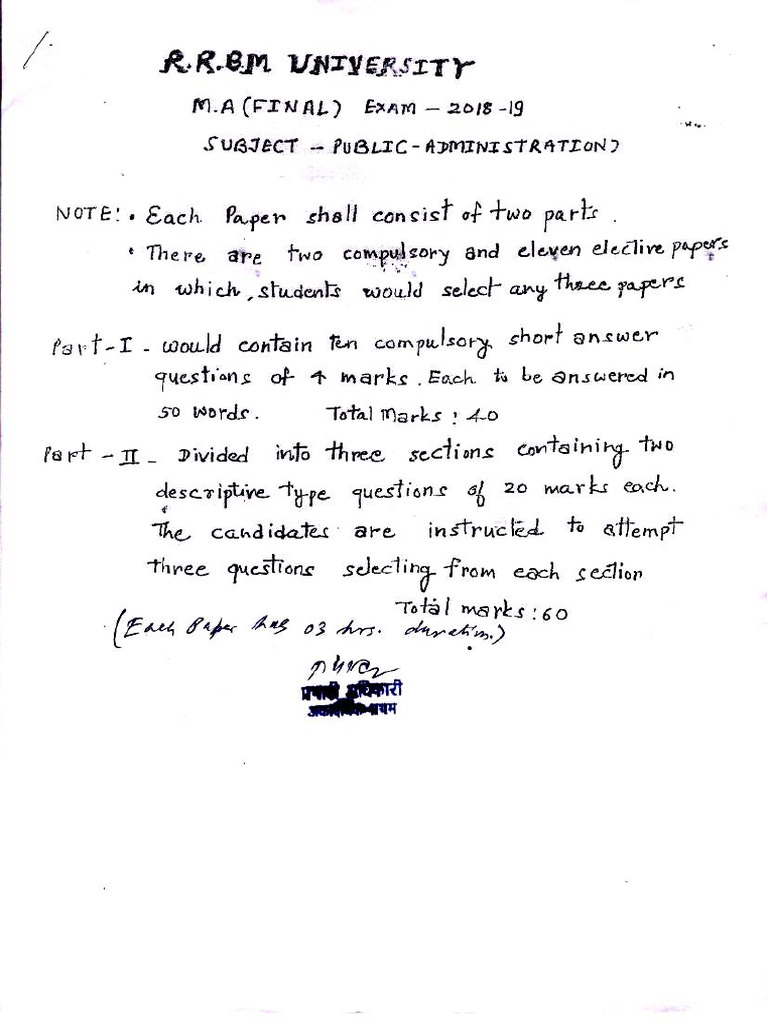 R.R.BM UNIVERSITY
M.A (FINAL) EXAM – 2018-19
SUBJECT – PUBLIC-ADMINISTRATION)
NOTE: • Each Paper shall consist of two parts.
• There are two compulsory and eleven elective papers
in which, students would select any three papers
Part-I - would contain ten compulsory short answer
questions of 4 marks. Each to be answered in
50 words. Total Marks: 40
Part -II - Divided into three sections containing two
descriptive type questions of 20 marks each.
The candidates are instructed to attempt
three questions selecting from each section
Total marks: 60
(Each Paper has 03 hrs. duration.)
प्रभारी अधिकारी
अकादमिक-प्रथम